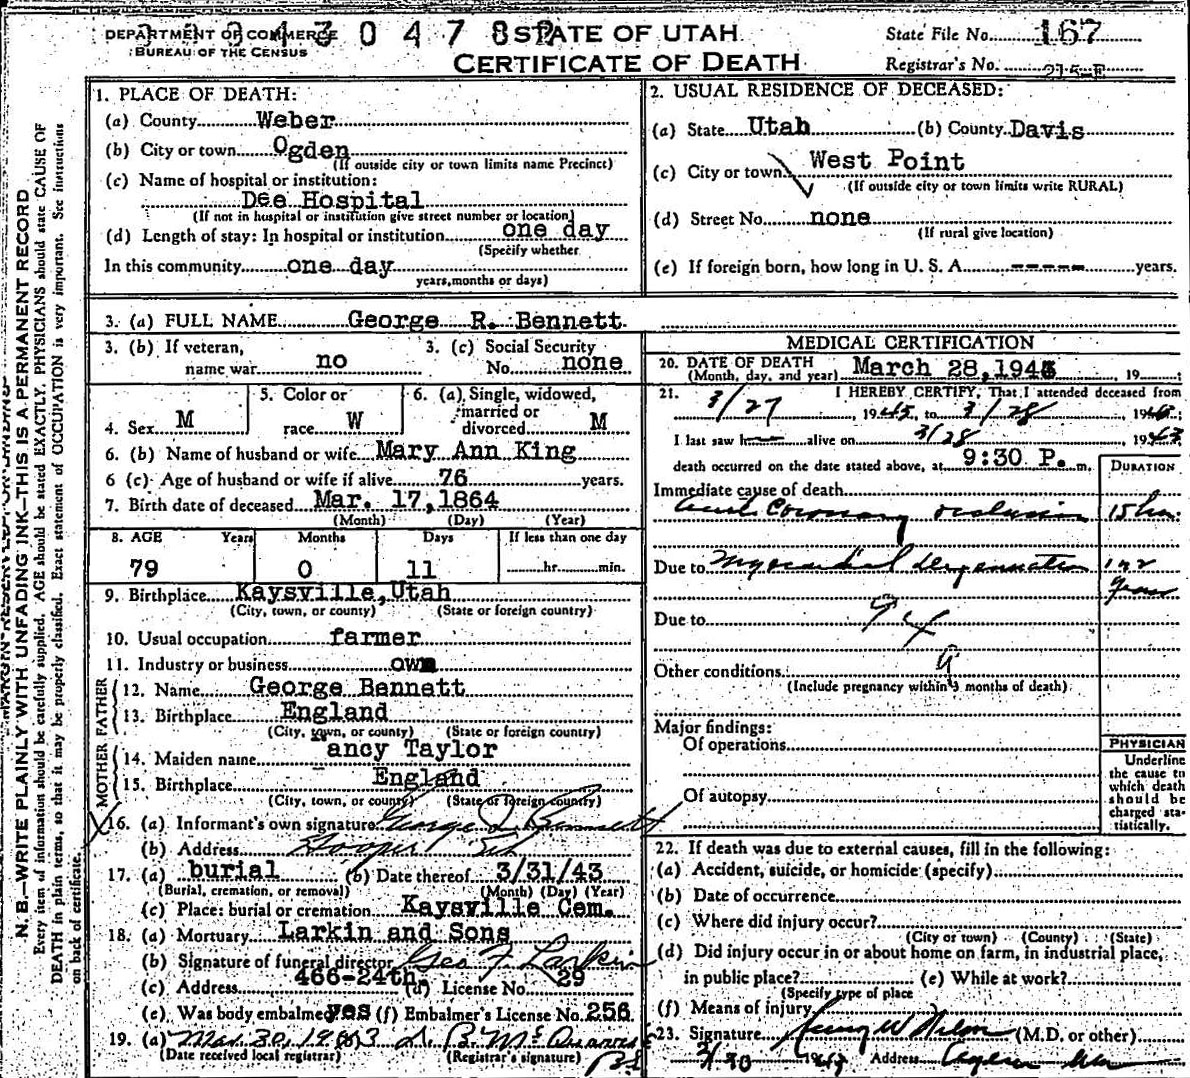 DEPARTMENT OF COMMERCE
BUREAU OF THE CENSUS
43 0 4 7 8
STATE OF UTAH
CERTIFICATE OF DEATH
State File No. 167
Registrar's No. 215-E
MARGIN RESERVED FOR BINDING
N. B.—WRITE PLAINLY WITH UNFADING INK—THIS IS A PERMANENT RECORD
Every item of information should be carefully supplied. AGE should be stated EXACTLY. PHYSICIANS should state CAUSE OF
DEATH in plain terms, so that it may be properly classified. Exact statement of OCCUPATION is very important. See instructions
on back of certificate.
1. PLACE OF DEATH:
(a) County Weber
(b) City or town Ogden
(If outside city or town limits name Precinct)
(c) Name of hospital or institution:
Dee Hospital
(If not in hospital or institution give street number or location)
(d) Length of stay: In hospital or institution one day
(Specify whether
In this community one day
years, months or days)
2. USUAL RESIDENCE OF DECEASED:
(a) State Utah (b) County Davis
(c) City or town West Point
(If outside city or town limits write RURAL)
(d) Street No. none
(If rural give location)
(e) If foreign born, how long in U. S. A. ----- years.
3. (a) FULL NAME George R. Bennett
3. (b) If veteran, name war no
3. (c) Social Security No. none
4. Sex M
5. Color or race W
6. (a) Single, widowed, married or divorced M
6. (b) Name of husband or wife Mary Ann King
6 (c) Age of husband or wife if alive 76 years.
7. Birth date of deceased Mar. 17, 1864
(Month) (Day) (Year)
8. AGE Years Months Days If less than one day
79 0 11 hr. min.
9. Birthplace Kaysville, Utah
(City, town, or county) (State or foreign country)
10. Usual occupation farmer
11. Industry or business own
FATHER
12. Name George Bennett
13. Birthplace England
(City, town, or county) (State or foreign country)
MOTHER
14. Maiden name ancy Taylor
15. Birthplace England
(City, town, or county) (State or foreign country)
16. (a) Informant's own signature George Bennett
(b) Address Hooper Ut
17. (a) burial (b) Date thereof 3/31/43
(Burial, cremation, or removal) (Month) (Day) (Year)
(c) Place: burial or cremation Kaysville Cem.
18. (a) Mortuary Larkin and Sons
(b) Signature of funeral director Geo F. Larkin
(c) Address 466-24th (d) License No. 29
(e) Was body embalmed yes (f) Embalmer's License No. 256
19. (a) Mar. 30, 1943
(Date received local registrar) (Registrar's signature)
MEDICAL CERTIFICATION
20. DATE OF DEATH March 28, 1943, 19
(Month, day, and year)
21. I HEREBY CERTIFY, That I attended deceased from
3/27, 1943, to 3/28 1943
I last saw h alive on 3/28 1943
death occurred on the date stated above, at 9:30 P. m.
DURATION
Immediate cause of death
Acute Coronary occlusion 15 hrs.
Due to Myocardial degeneration 1 or 2 years
Due to
Other conditions
(Include pregnancy within 3 months of death)
Major findings:
Of operations
Of autopsy
PHYSICIAN
Underline
the cause to
which death
should be
charged sta-
tistically.
22. If death was due to external causes, fill in the following:
(a) Accident, suicide, or homicide (specify)
(b) Date of occurrence
(c) Where did injury occur?
(City or town) (County) (State)
(d) Did injury occur in or about home on farm, in industrial place,
in public place? (e) While at work?
(Specify type of place
(f) Means of injury
23. Signature (M.D. or other)
3/30 1943 Address